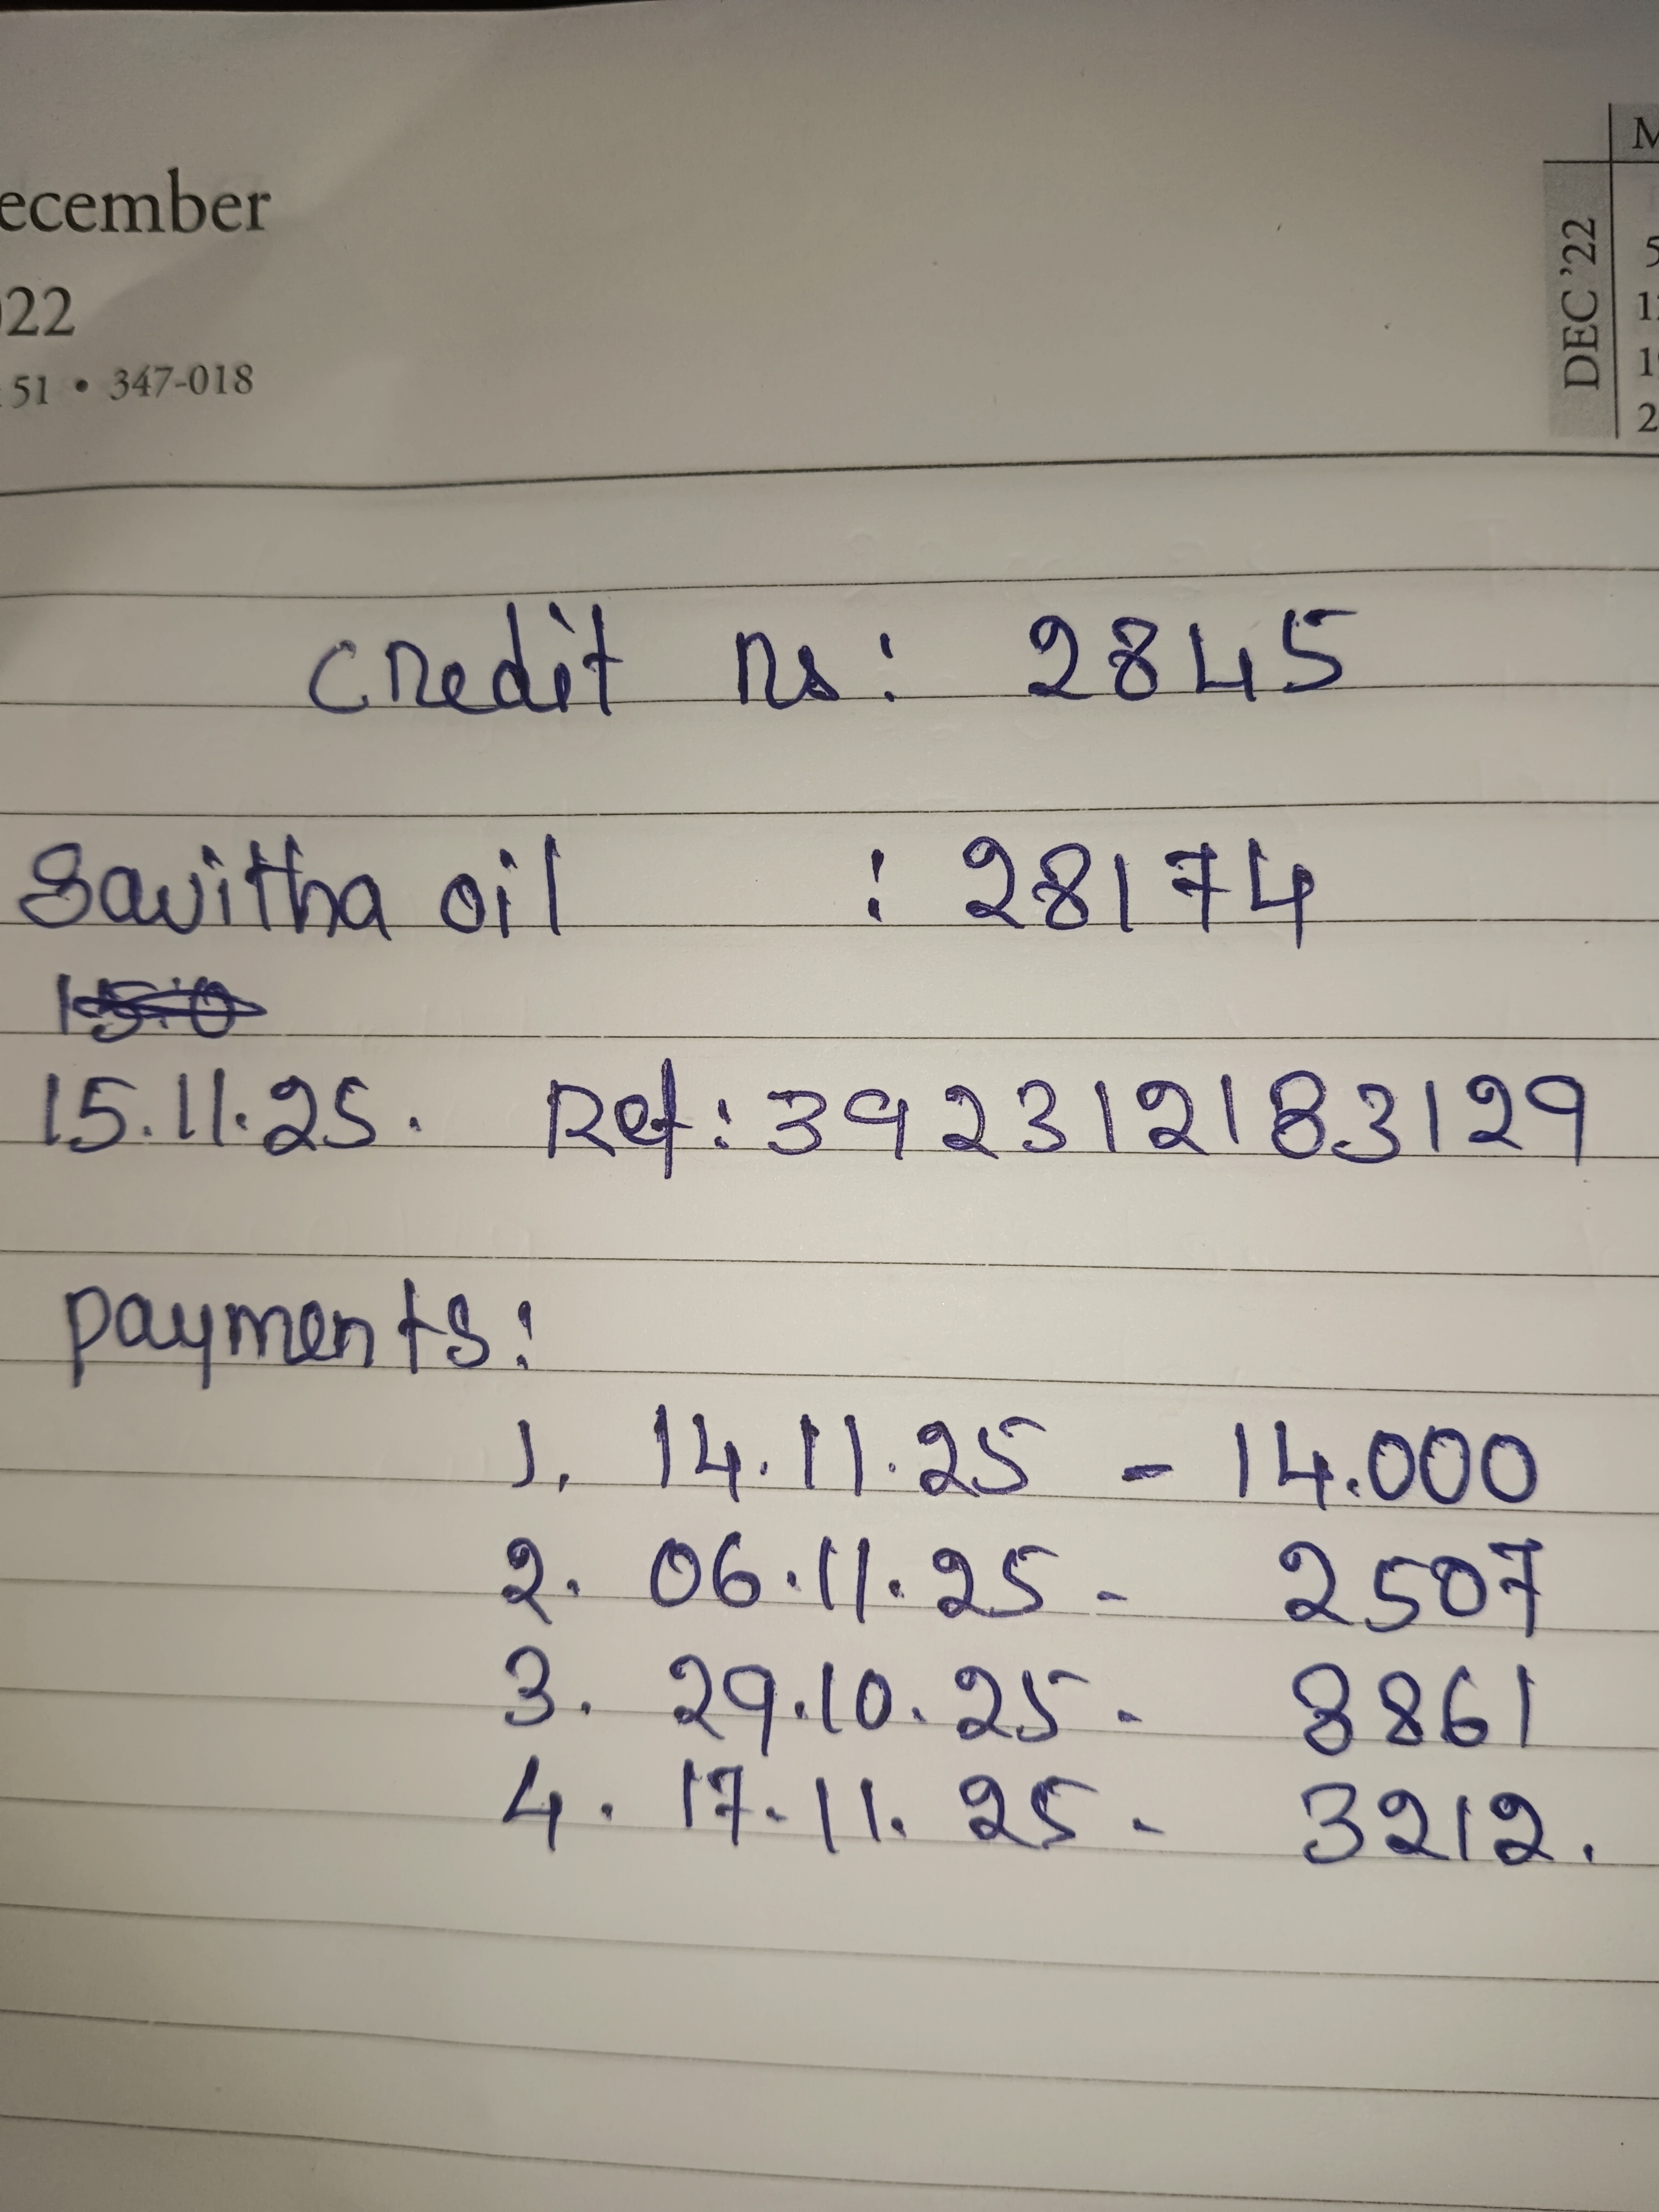 ecember
022
51 • 347-018
M
DEC '22
5
1
19
2
Credit rs: 2845
Savitha oil : 28174
15.11.25. Ref: 392312183129
payments:
1. 14.11.25 - 14.000
2. 06.11.25 - 2507
3. 29.10.25 - 8861
4. 17.11.25 - 3212.